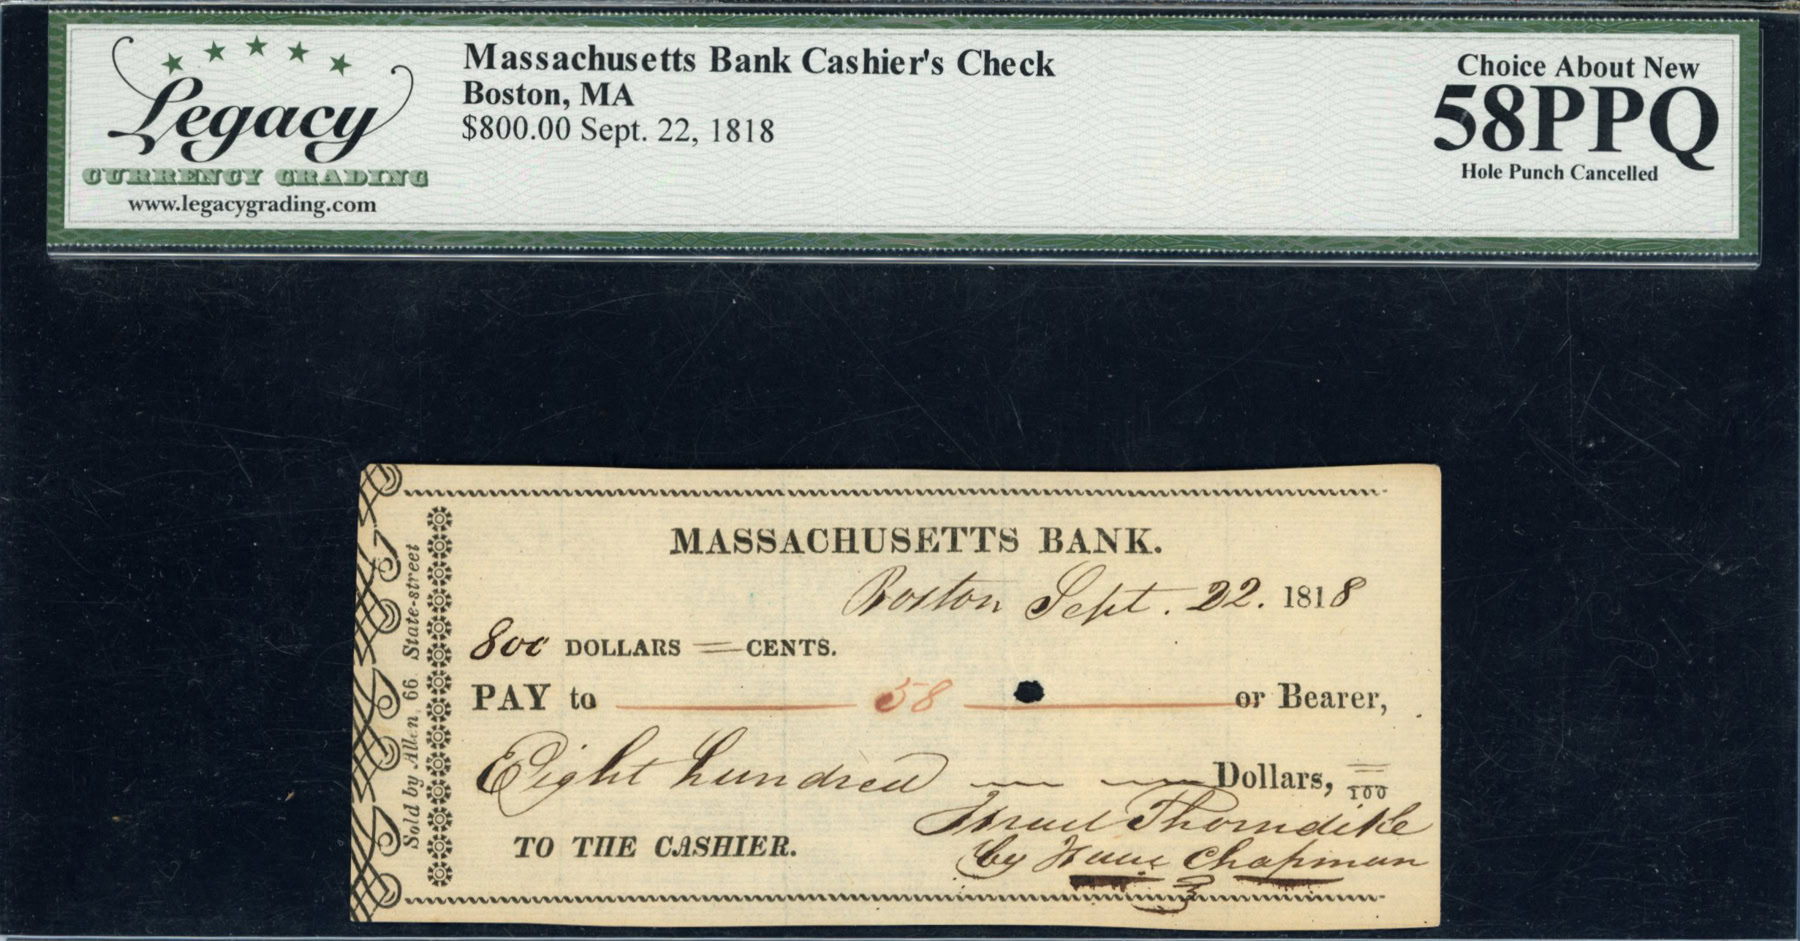 Legacy
CURRENCY GRADING
www.legacygrading.com
Massachusetts Bank Cashier's Check
Boston, MA
$800.00 Sept. 22, 1818
Choice About New
58PPQ
Hole Punch Cancelled
Sold by Allen 66 State-street
MASSACHUSETTS BANK.
Boston Sept. 22. 1818
800 DOLLARS = CENTS.
PAY to 58 or Bearer,
Eight hundred Dollars, 100
Israel Thorndike
TO THE CASHIER.
by Isaac Chapman